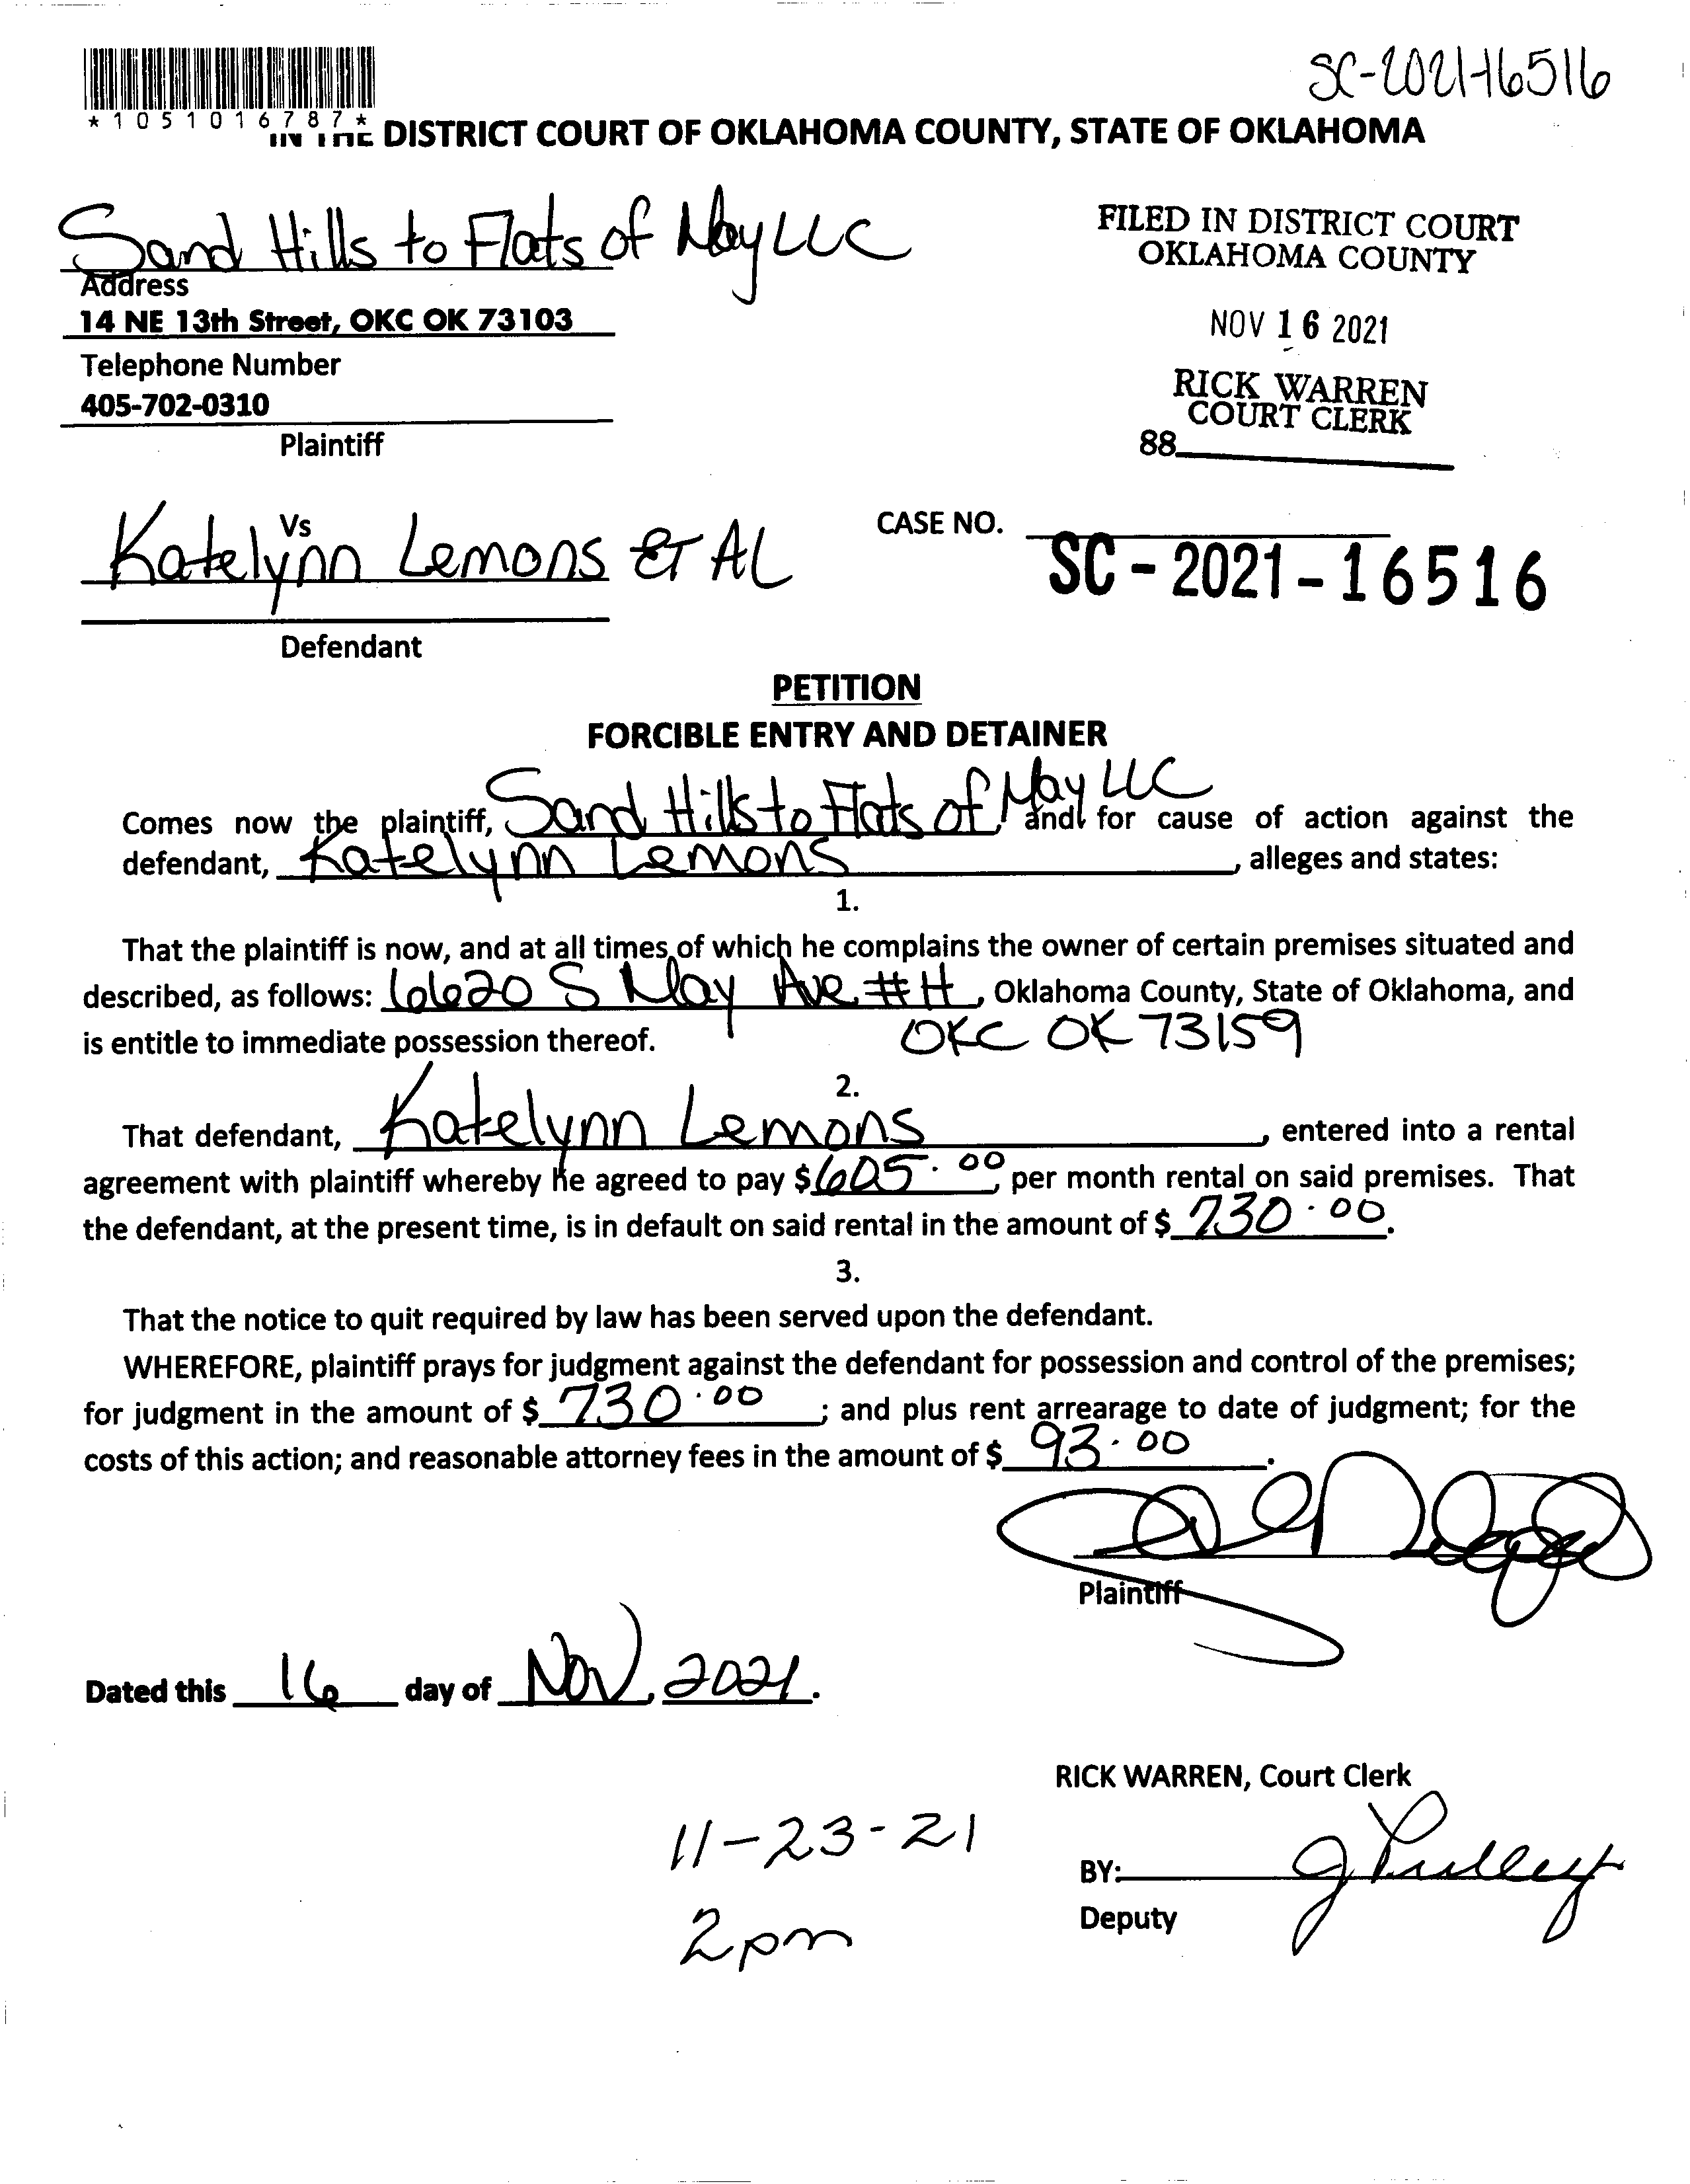 SC-2021-16516
*1051016787*
IN THE DISTRICT COURT OF OKLAHOMA COUNTY, STATE OF OKLAHOMA
Sand Hills to Flats of May LLC
Address
14 NE 13th Street, OKC OK 73103
Telephone Number
405-702-0310
Plaintiff
FILED IN DISTRICT COURT
OKLAHOMA COUNTY
NOV 16 2021
RICK WARREN
COURT CLERK
88
Vs
Katelynn Lemons ET AL
Defendant
CASE NO.
SC-2021-16516
PETITION
FORCIBLE ENTRY AND DETAINER
Comes now the plaintiff, Sand Hills to Flats of May LLC, and for cause of action against the
defendant, Katelynn Lemons, alleges and states:
1.
That the plaintiff is now, and at all times of which he complains the owner of certain premises situated and
described, as follows: 6620 S May Ave #H, Oklahoma County, State of Oklahoma, and
is entitle to immediate possession thereof. OKC OK 73159
2.
That defendant, Katelynn Lemons, entered into a rental
agreement with plaintiff whereby he agreed to pay $605.00, per month rental on said premises. That
the defendant, at the present time, is in default on said rental in the amount of $ 730.00.
3.
That the notice to quit required by law has been served upon the defendant.
WHEREFORE, plaintiff prays for judgment against the defendant for possession and control of the premises;
for judgment in the amount of $ 730.00; and plus rent arrearage to date of judgment; for the
costs of this action; and reasonable attorney fees in the amount of $ 93.00.
Plaintiff
Dated this 16 day of Nov, 2021.
RICK WARREN, Court Clerk
11-23-21
2pm
BY:
Deputy